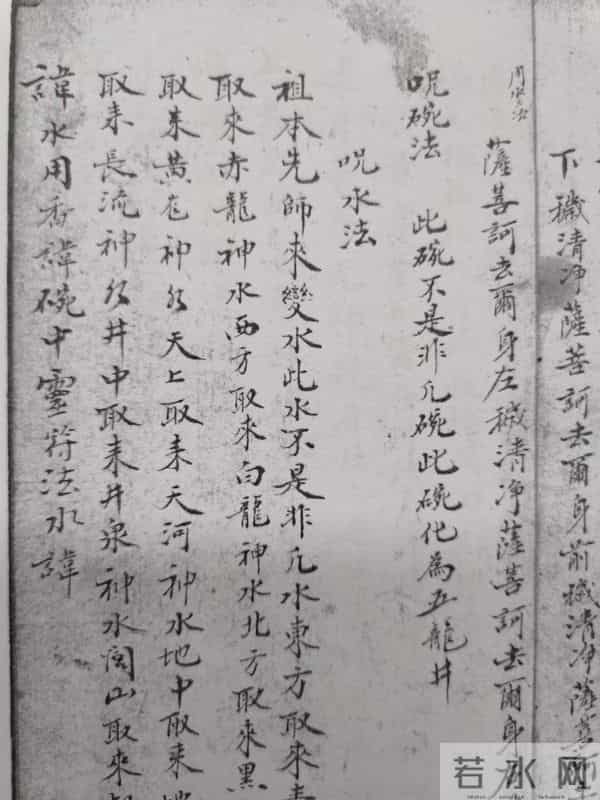 下穢清净薩菩訶去爾身前穢清净薩菩
薩菩訶去爾身左穢清净薩菩訶去爾身
呪碗法 此碗不是非凡碗此碗化為五龍井
呪水法
祖本先師來變水此水不是非凡水東方取來
取來赤龍神水西方取來白龍神水北方取來黑
取来黄龙神水天上取来天河神水地中取来
取来長流神水井中取来井泉神水閭山取來
諱水用香諱碗中靈符法水諱
若水网